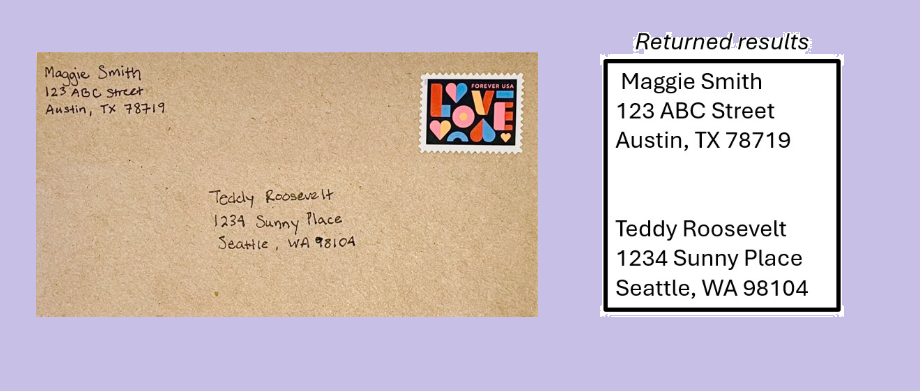 Maggie Smith
123 ABC Street
Austin, TX 78719
FOREVER USA
LOVE
Teddy Roosevelt
1234 Sunny Place
Seattle, WA 98104
Returned results
Maggie Smith
123 ABC Street
Austin, TX 78719
Teddy Roosevelt
1234 Sunny Place
Seattle, WA 98104